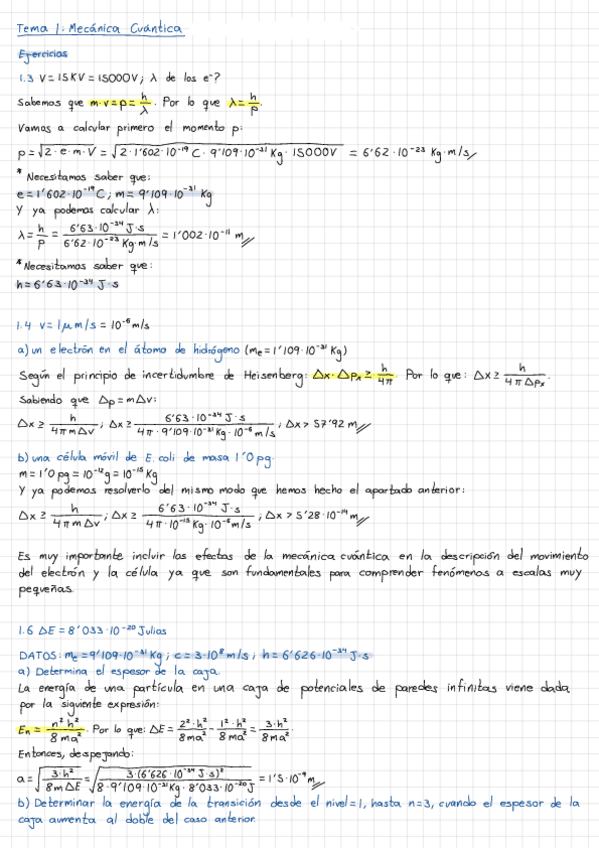 Tema 1: Mecánica Cuántica
Ejercicios
1.3 V = 15KV = 15000V; λ de los e⁻?
Sabemos que m·v=p= h/λ. Por lo que λ= h/p.
Vamos a calcular primero el momento p:
p=√(2·e·m·V) = √(2·1'602·10⁻¹⁹ C · 9'109·10⁻³¹ Kg · 15000V) = 6'62·10⁻²³ Kg·m/s
* Necesitamos saber que:
e=1'602·10⁻¹⁹ C; m= 9'109·10⁻³¹ Kg
Y ya podemos calcular λ:
λ= h/p = 6'63·10⁻³⁴ J·s / 6'62·10⁻²³ Kg·m/s = 1'002·10⁻¹¹ m
* Necesitamos saber que:
h=6'63·10⁻³⁴ J·s
1.4 v= 1μm/s = 10⁻⁶ m/s
a) un electrón en el átomo de hidrógeno (me=1'109·10⁻³¹ Kg)
Según el principio de incertidumbre de Heisenberg: Δx·Δpx ≥ h/4π. Por lo que: Δx ≥ h/4πΔpx.
Sabiendo que Δp=mΔv:
Δx ≥ h/4πmΔv; Δx ≥ 6'63·10⁻³⁴ J·s / 4π·9'109·10⁻³¹ Kg·10⁻⁶ m/s; Δx > 57'92 m
b) una célula móvil de E. coli de masa 1'0 pg.
m= 1'0 pg = 10⁻¹² g = 10⁻¹⁵ Kg
Y ya podemos resolverlo del mismo modo que hemos hecho el apartado anterior:
Δx ≥ h/4πmΔv; Δx ≥ 6'63·10⁻³⁴ J·s / 4π·10⁻¹⁵ Kg·10⁻⁶ m/s; Δx > 5'28·10⁻¹⁴ m
Es muy importante incluir las efectas de la mecánica cuántica en la descripción del movimiento
del electrón y la célula ya que son fundamentales para comprender fenómenos a escalas muy
pequeñas.
1.6 ΔE = 8'033·10⁻²⁰ Julios
DATOS: me=9'109·10⁻³¹ Kg; c=3·10⁸ m/s; h=6'626·10⁻³⁴ J·s
a) Determina el espesor de la caja.
La energía de una partícula en una caja de potenciales de paredes infinitas viene dada
por la siguiente expresión:
En = n²h²/8ma². Por lo que: ΔE= 2²·h²/8ma² - 1²·h²/8ma² = 3·h²/8ma².
Entonces, despejando:
a=√(3·h²/8mΔE) = √(3·(6'626·10⁻³⁴ J·s)²/8·9'109·10⁻³¹ Kg·8'033·10⁻²⁰ J) = 1'5·10⁻⁹ m
b) Determinar la energía de la transición desde el nivel=1, hasta n=3, cuando el espesor de la
caja aumenta al doble del caso anterior.